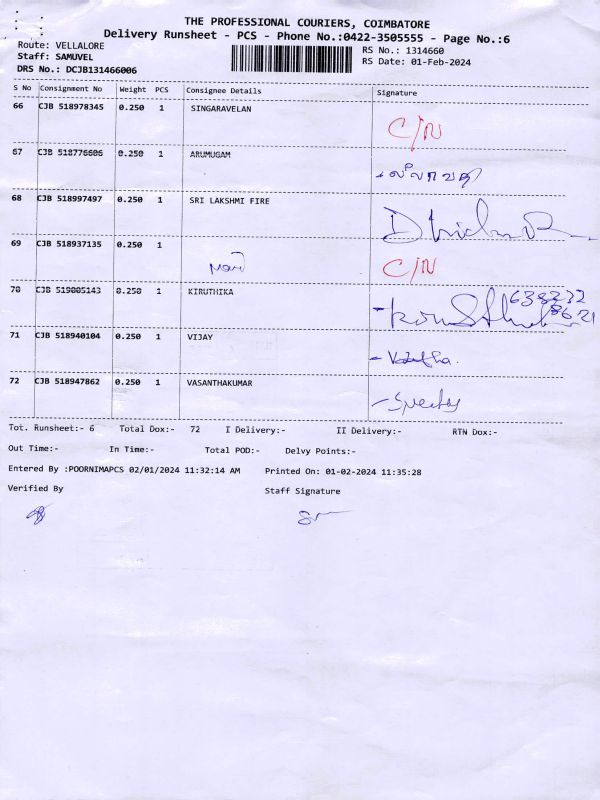 THE PROFESSIONAL COURIERS, COIMBATORE
Delivery Runsheet - PCS - Phone No.:0422-3505555 - Page No.:6
Route: VELLALORE RS No.: 1314660
Staff: SAMUVEL RS Date: 01-Feb-2024
DRS No.: DCJB131466006
S No Consignment No Weight PCS Consignee Details Signature
66 CJB 518978345 0.250 1 SINGARAVELAN C/N
67 CJB 518776606 0.250 1 ARUMUGAM
68 CJB 518997497 0.250 1 SRI LAKSHMI FIRE
69 CJB 518937135 0.250 1 C/N
70 CJB 519005143 0.250 1 KIRUTHIKA
71 CJB 518940104 0.250 1 VIJAY
72 CJB 518947862 0.250 1 VASANTHAKUMAR
Tot. Runsheet:- 6 Total Dox:- 72 I Delivery:- II Delivery:- RTN Dox:-
Out Time:- In Time:- Total POD:- Delvy Points:-
Entered By :POORNIMAPCS 02/01/2024 11:32:14 AM Printed On: 01-02-2024 11:35:28
Verified By Staff Signature